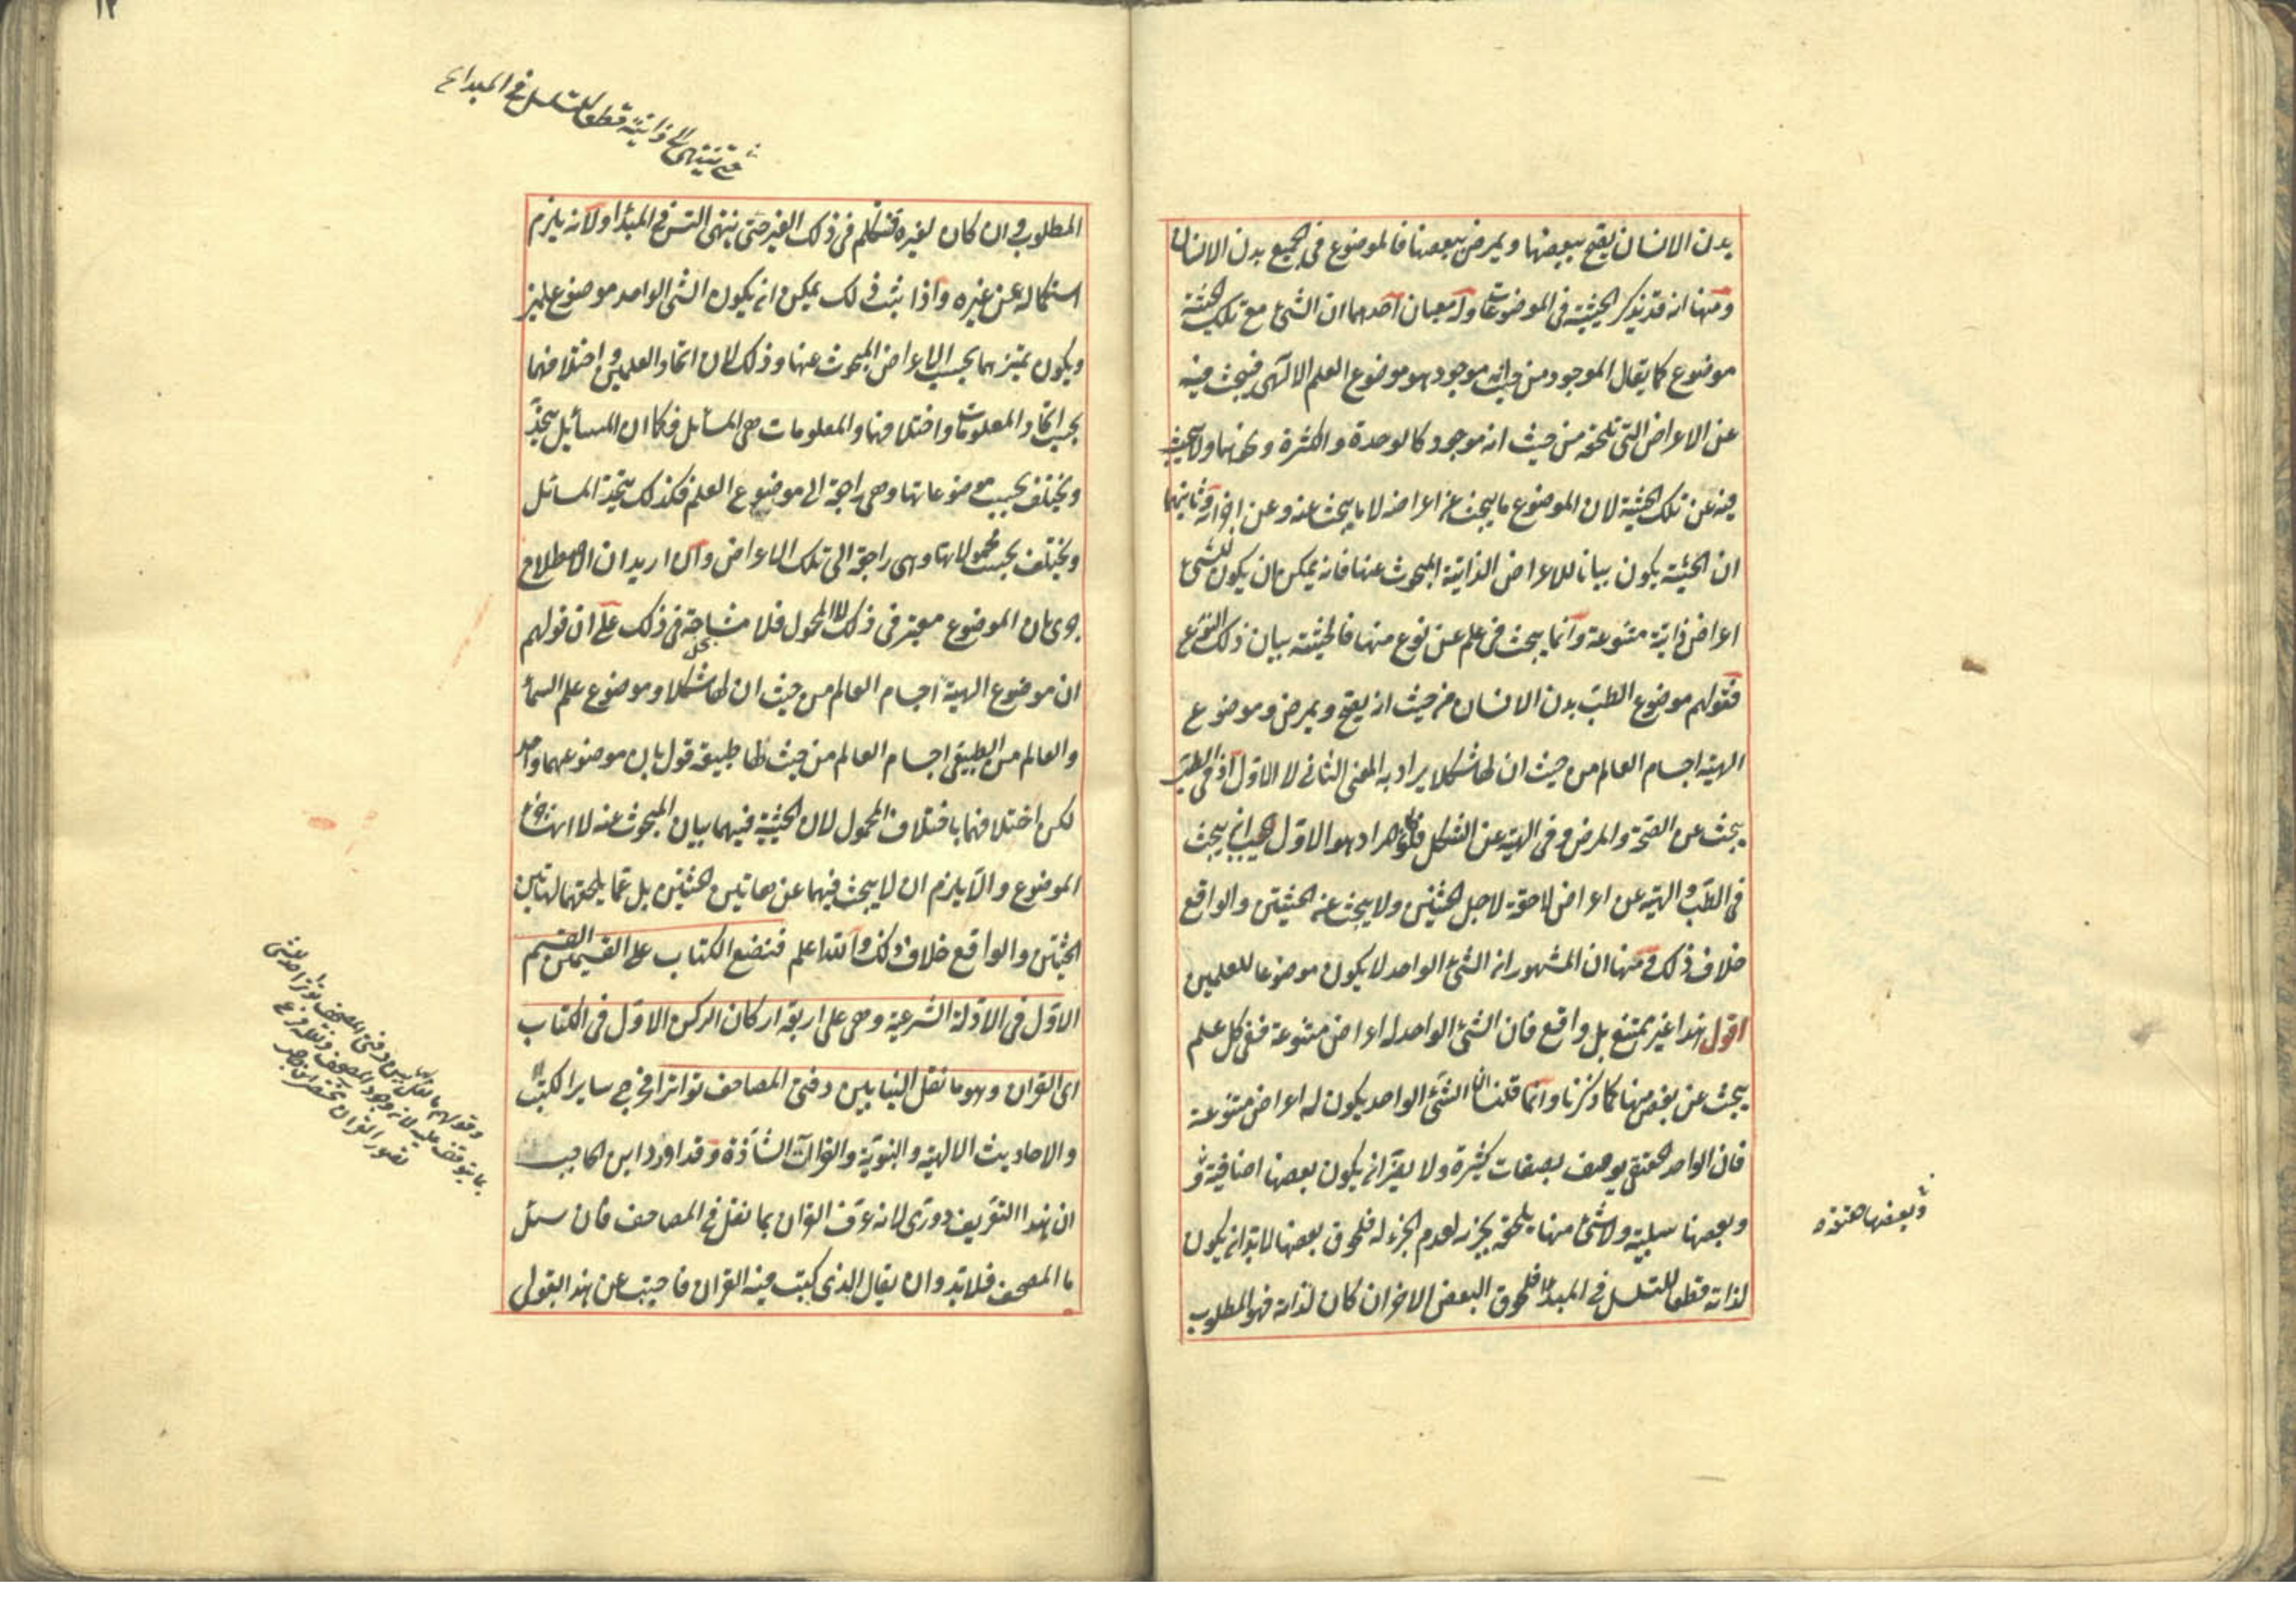 بدن الانسان يصح ببعضها ويمرض ببعضها فالموضوع فى الجميع بدن الانسان
ومنها انه قد يذكر الحيثية فى الموضوعات وله معنيان احدهما ان الشئ مع تلك الحيثية
موضوع كما يقال الموجود من حيث انه موجود هو موضوع العلم الالهى فيبحث فيه
عن الاعراض التى تلحقه من حيث انه موجود كالوحدة والكثرة ونحوهما ولا يبحث
فيه عن تلك الحيثية لان الموضوع ما يبحث عن اعراضه لا ما يبحث عنه وعن اجزائه وثانيهما
ان الحيثية يكون بيانا للاعراض الذاتية المبحوث عنها فانه يمكن ان يكون للشئ
اعراض ذاتية متنوعة وانما يبحث فى علم عن نوع منها فالحيثية بيان ذلك النوع
فقولهم موضوع الطب بدن الانسان من حيث انه يصح ويمرض وموضوع
الهيئة اجسام العالم من حيث ان لها شكلا يراد به المعنى الثانى لا الاول اذ فى الطب
يبحث عن الصحة والمرض وفى الهيئة عن الشكل فلو كان المراد هو الاول يجب ان يبحث
فى الطب والهيئة عن اعراض لاحقة لاجل الحيثيتين ولا يبحث عن الحيثيتين والواقع
خلاف ذلك ومنها ان المشهور ان الشئ الواحد لا يكون موضوعا للعلمين
اقول هذا غير ممتنع بل واقع فان الشئ الواحد له اعراض متنوعة ففى كل علم
يبحث عن بعض منها كما ذكرنا وانما قلنا ان الشئ الواحد يكون له اعراض متنوعة
فان الواحد الحقيقى يوصف بصفات كثيرة ولا يضر ان يكون بعضها اضافية
وبعضها سلبية ولا شئ منها يلحقه لجزئه لعدم الجزء له فلحوق بعضها لا بد ان يكون
لذاته قطعا للتسلسل فى المبدأ فلحوق البعض الاخر ان كان لذاته فهو المطلوب
وبعضها حقيقة
حتى تنتهى الى ذاتية قطعا للتسلسل فى المبدأ
المطلوب وان كان لغيره فنتكلم فى ذلك الغير حتى ينتهى التس فى المبدأ ولانه يلزم
استكماله عن غيره واذا ثبت ذلك يمكن ان يكون الشئ الواحد موضوع علمين
ويكون تميزهما بحسب الاعراض المبحوث عنها وذلك لان اتحاد العلمين واختلافهما
بحسب اتحاد المعلومات واختلافها والمعلومات هى المسائل فكما ان المسائل تتحد
وتختلف بحسب موضوعاتها وهى راجعة الى موضوع العلم فكذلك تتحد المسائل
وتختلف بحسب محمولاتها وهى راجعة الى تلك الاعراض وان اريد ان الاصطلاح
جرى بان الموضوع معتبر فى ذلك لا المحمول فلا مشاحة فى ذلك على ان قولهم
ان موضوع الهيئة اجسام العالم من حيث ان لها شكلا وموضوع علم السماء
والعالم من الطبيعى اجسام العالم من حيث لها طبيعة قول بان موضوعهما واحد
لكن اختلافهما باختلاف المحمول لان الحيثية فيهما بيان المبحوث عنه لا انها جزء
الموضوع والا يلزم ان لا يبحث فيهما عن هاتين الحيثيتين بل عما يلحقهما لهاتين
الحيثيتين والواقع خلاف ذلك والله اعلم فنضع الكتاب على القسمين القسم
الاول فى الادلة الشرعية وهى على اربعة اركان الركن الاول فى الكتاب
اى القران وهو ما نقل الينا بين دفتى المصاحف تواترا فخرج سائر الكتب
والاحاديث الالهية والنبوية والقراات الشاذة وقد اورد ابن الحاجب
ان هذا التعريف دورى لانه عرف القران بما نقل فى المصاحف فان سئل
ما المصحف فلا بد وان يقال الذى كتب فيه القران فاجبت عن هذا بقولى
وقولهم ما نقل الينا بين دفتى المصحف تواترا حد للشئ
بما يتوقف عليه لان وجود المصحف ونقله فرع
تصور القران